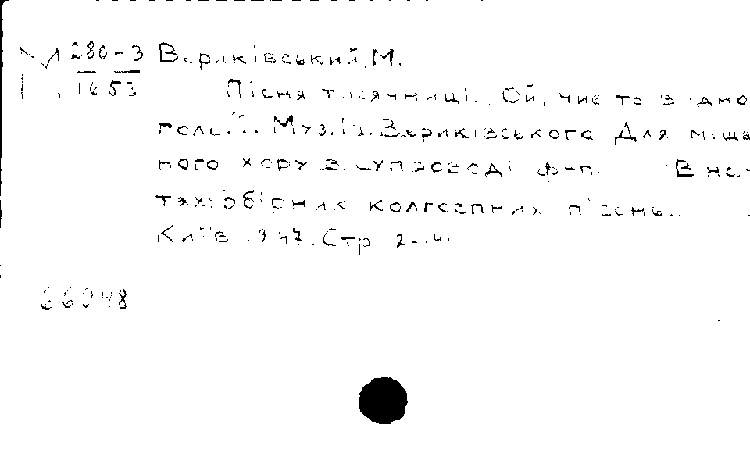 280-3 Вериківський, М.
1653 Пісня тисячниці. Ой, чиє то видно
поле... Муз. М. Вериківського Для міша
ного хору в супроводі ф-п. В но-
тах: Збірник колгоспних пісень.
Київ 1947. Стр 2-4
66048